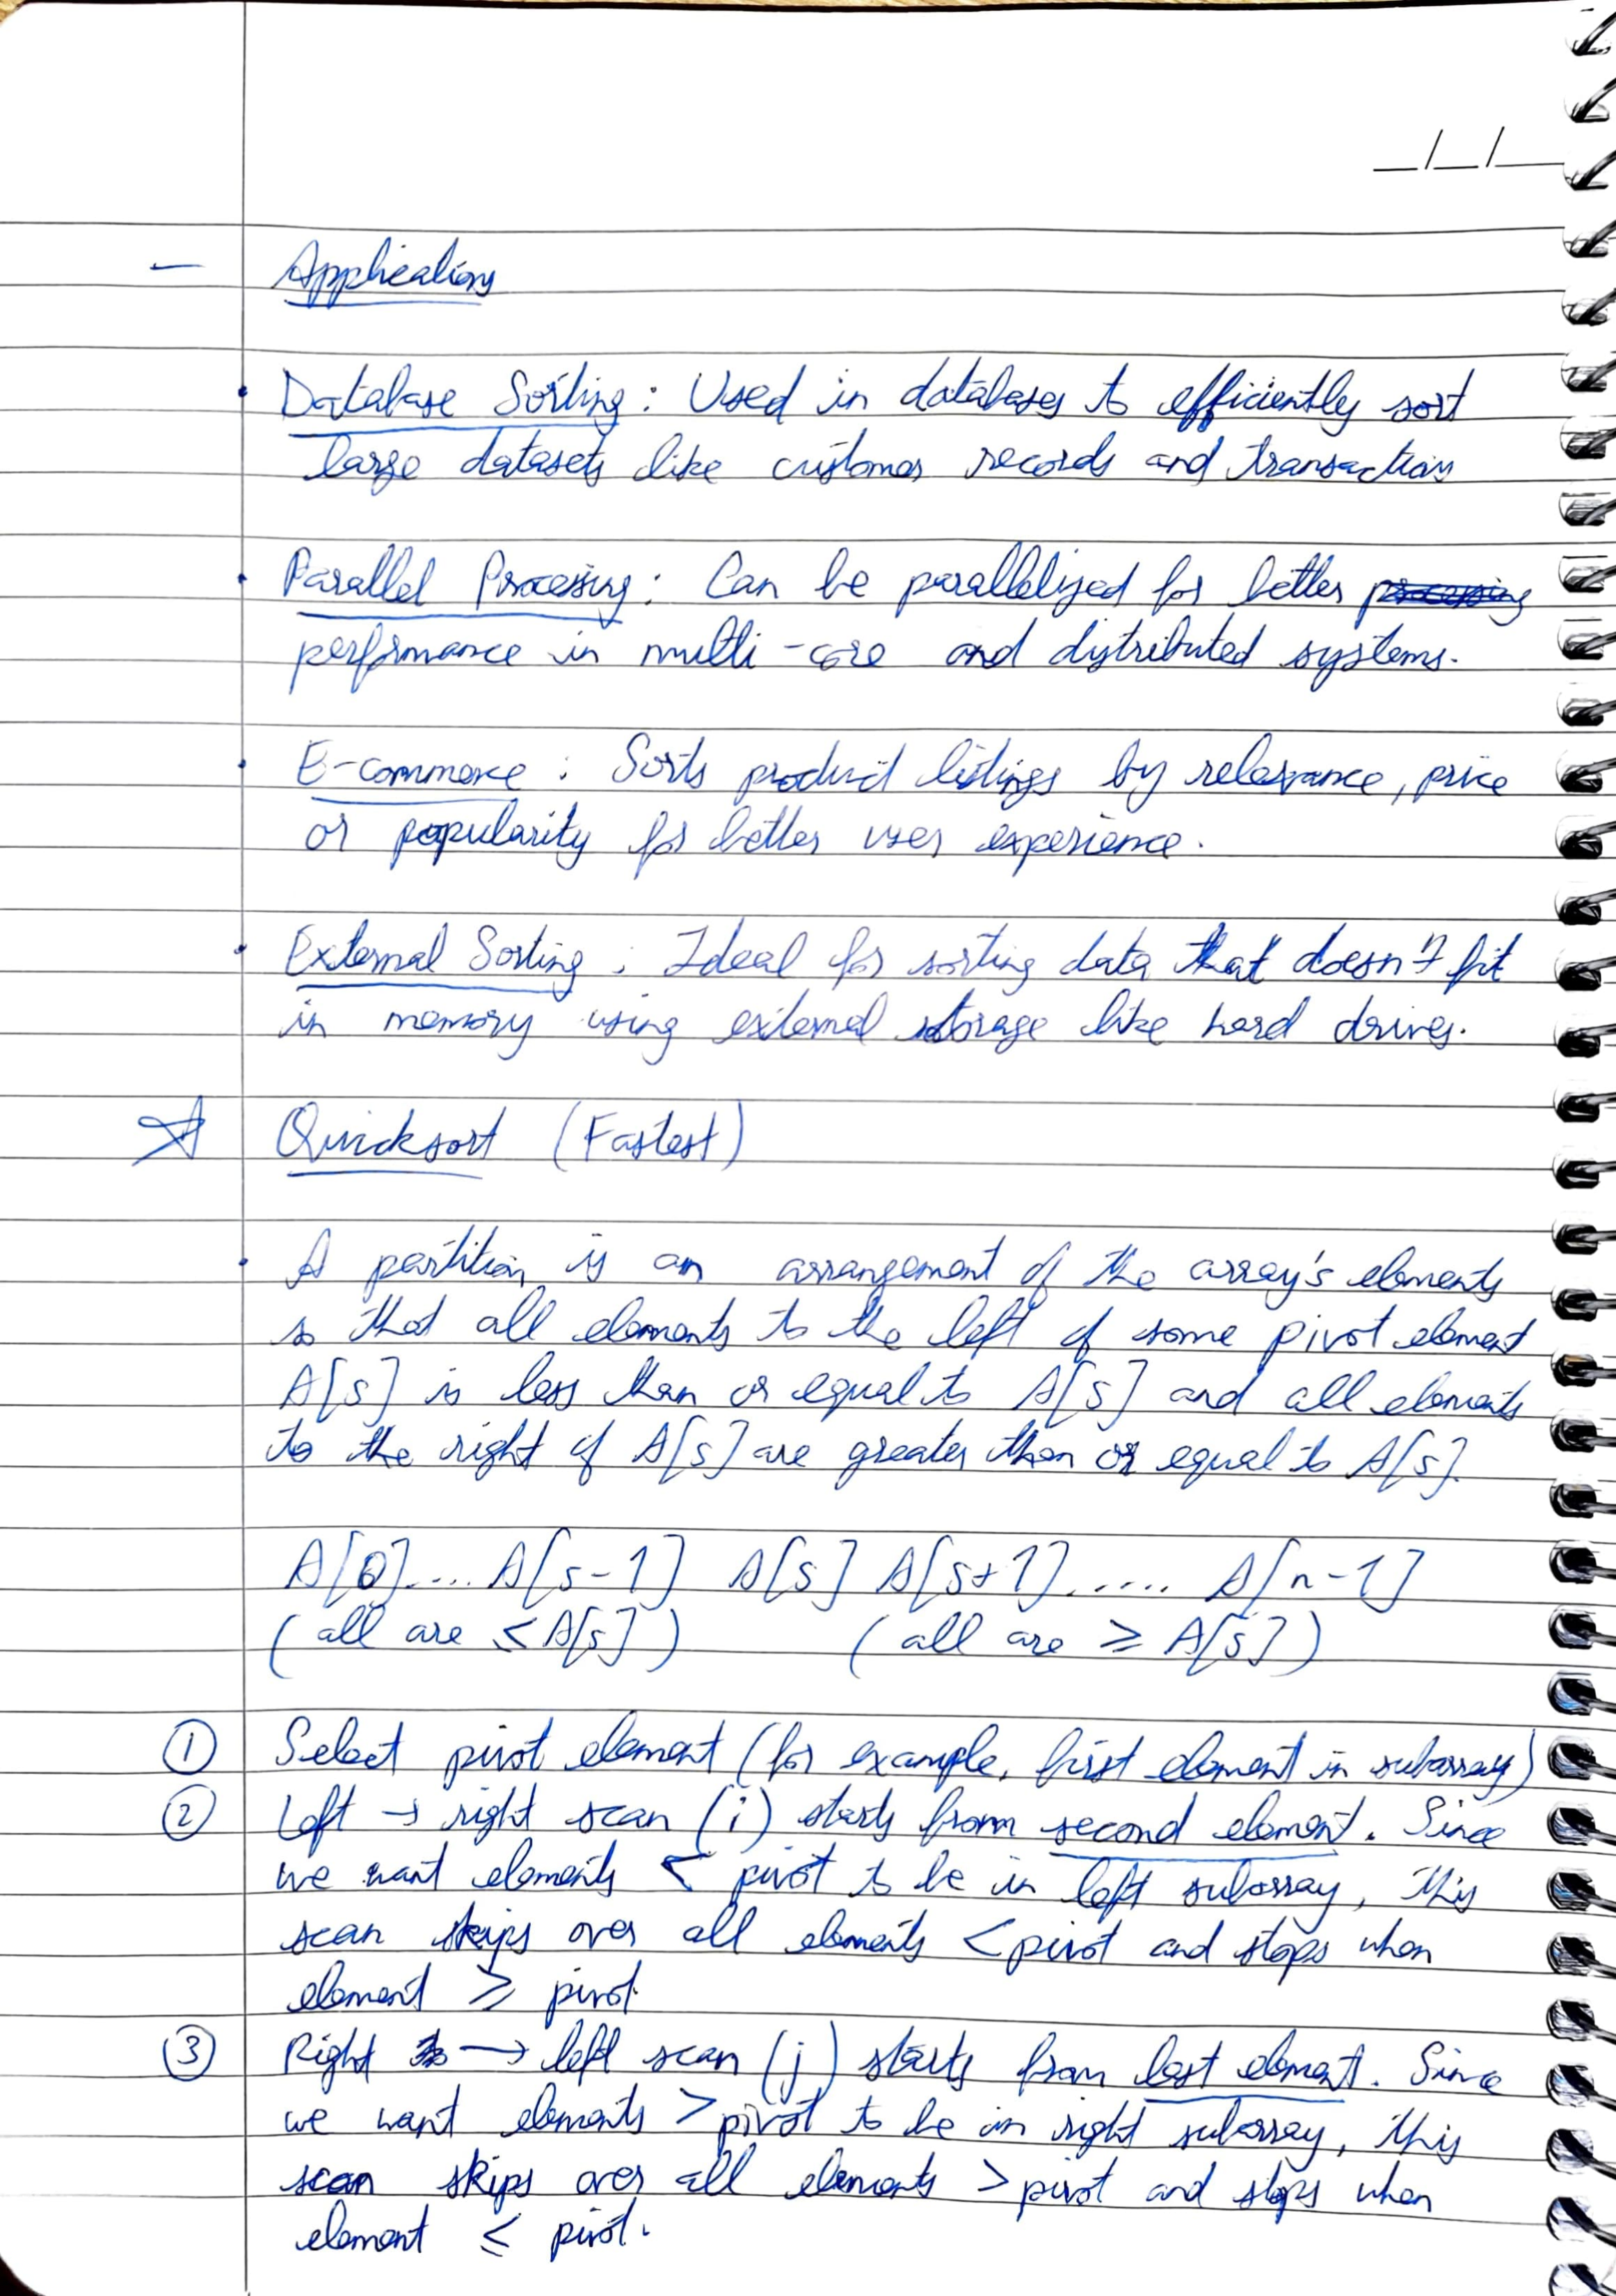 _/_/_
- Applications
• Database Sorting : Used in databases to efficiently sort
large datasets like customer records and transactions
• Parallel Processing : Can be parallelized for better processing
performance in multi-core and distributed systems.
• E-commerce : Sorts product listings by relevance, price
or popularity for better user experience.
• External Sorting : Ideal for sorting data that doesn't fit
in memory using external storage like hard drives.
☆ Quicksort (Fastest)
• A partition is an arrangement of the array's elements
so that all elements to the left of some pivot element
A[s] is less than or equal to A[s] and all elements
to the right of A[s] are greater than or equal to A[s].
A[0].... A[s-1] A[s] A[s+1]..... A[n-1]
(all are ≤ A[s]) (all are ≥ A[s])
① Select pivot element (for example, first element in subarray)
② Left → right scan (i) starts from second element. Since
we want elements < pivot to be in left subarray, this
scan skips over all elements < pivot and stops when
element ≥ pivot.
③ Right → left scan (j) starts from last element. Since
we want elements > pivot to be in right subarray, this
scan skips over all elements > pivot and stops when
element ≤ pivot.